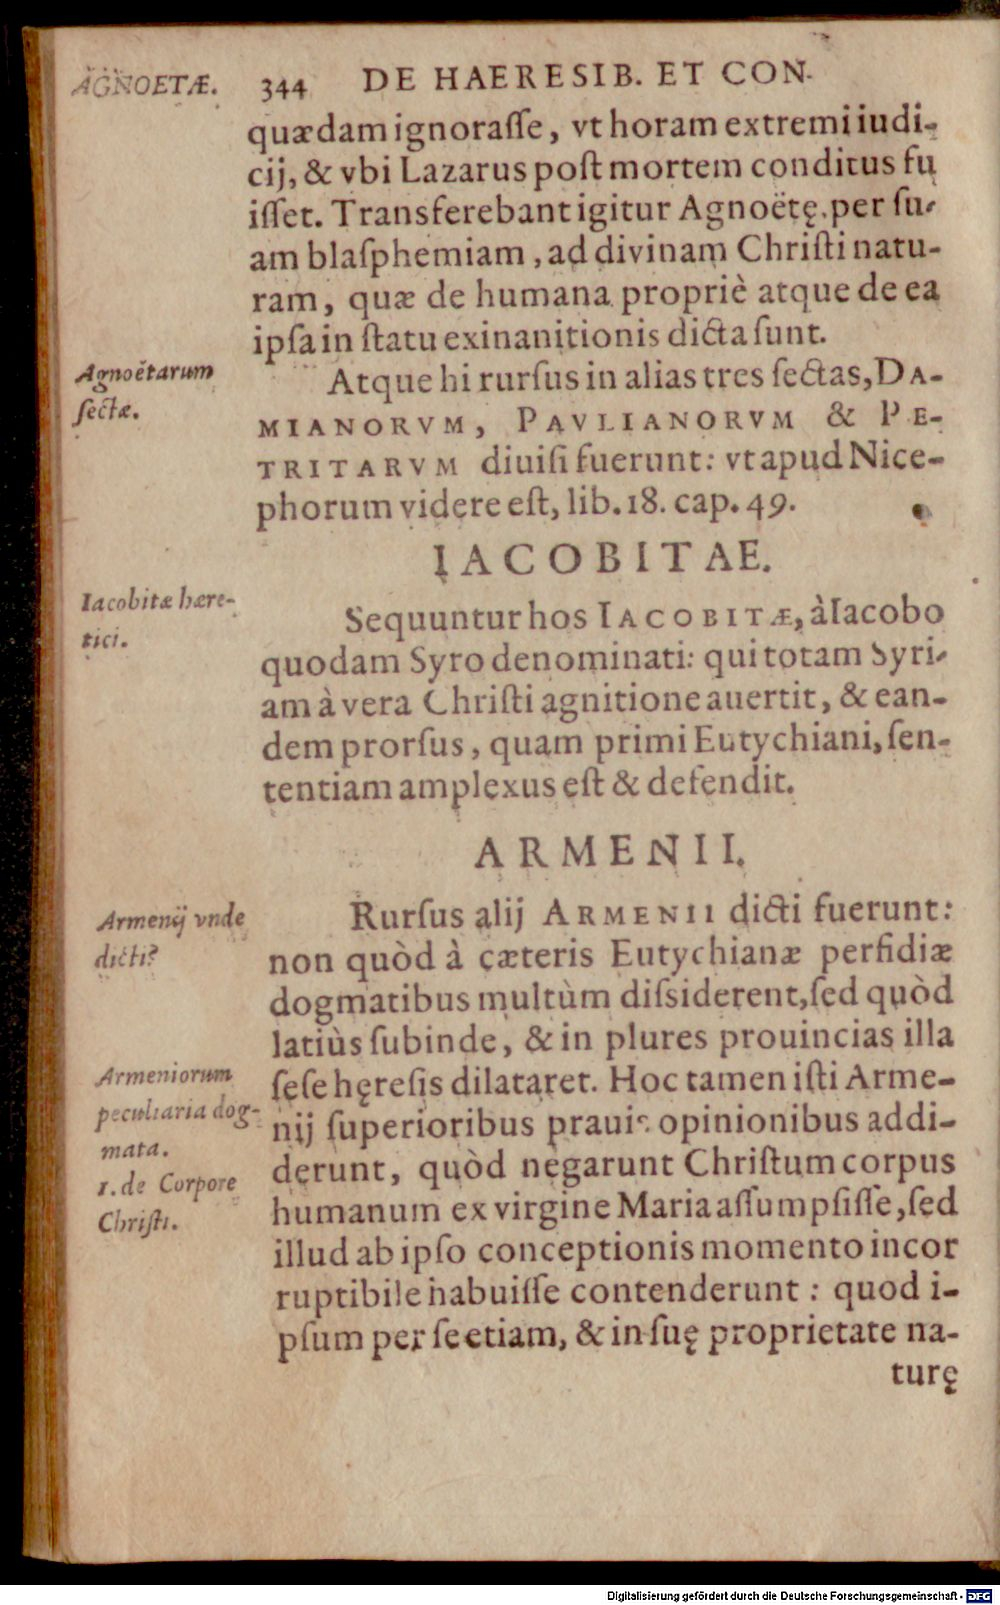 AGNOETÆ. 344 DE HAERESIB. ET CON-
quædam ignoraſſe, vt horam extremi iudi-
cij, & vbi Lazarus poſt mortem conditus fu
iſſet. Transferebant igitur Agnoëtę, per ſu-
am blaſphemiam, ad divinam Chriſti natu-
ram, quæ de humana propriè atque de ea
ipſa in ſtatu exinanitionis dicta ſunt.
Agnoëtarum
ſectæ.
Atque hi rurſus in alias tres ſectas, DA-
MIANORVM, PAVLIANORVM & PE-
TRITARVM diuiſi fuerunt: vt apud Nice-
phorum videre eſt, lib. 18. cap. 49.
IACOBITAE.
Iacobitæ hære-
tici.
Sequuntur hos IACOBITÆ, à Iacobo
quodam Syro denominati: qui totam Syri-
am à vera Chriſti agnitione auertit, & ean-
dem prorſus, quam primi Eutychiani, ſen-
tentiam amplexus eſt & defendit.
ARMENII.
Armenij vnde
dicti?
Rurſus alij ARMENII dicti fuerunt:
non quòd à cæteris Eutychianæ perfidiæ
dogmatibus multùm diſsiderent, ſed quòd
latiùs ſubinde, & in plures prouincias illa
Armeniorum
peculiaria dog-
mata.
1. de Corpore
Chriſti.
ſeſe hęreſis dilataret. Hoc tamen iſti Arme-
nij ſuperioribus prauis opinionibus addi-
derunt, quòd negarunt Chriſtum corpus
humanum ex virgine Maria aſſumpſiſſe, ſed
illud ab ipſo conceptionis momento incor
ruptibile habuiſſe contenderunt: quod i-
pſum per ſe etiam, & in ſuę proprietate na-
turę
Digitalisierung gefördert durch die Deutsche Forschungsgemeinschaft - DFG